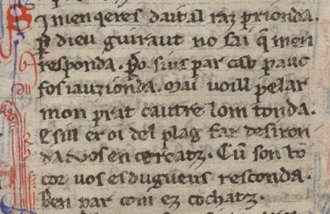 Si men qeres daital raz prionda.
Per dieu guiraut no sai qe men
responda. Po sius par cab pauc
fos iauzionda. mai voill pelar
mon prat cautre lom tonda.
E sill er oi del plag far desiron
da vos en cercatz. Cū son
cor vos es dugueus resconda.
Ben par com ez cochatz.